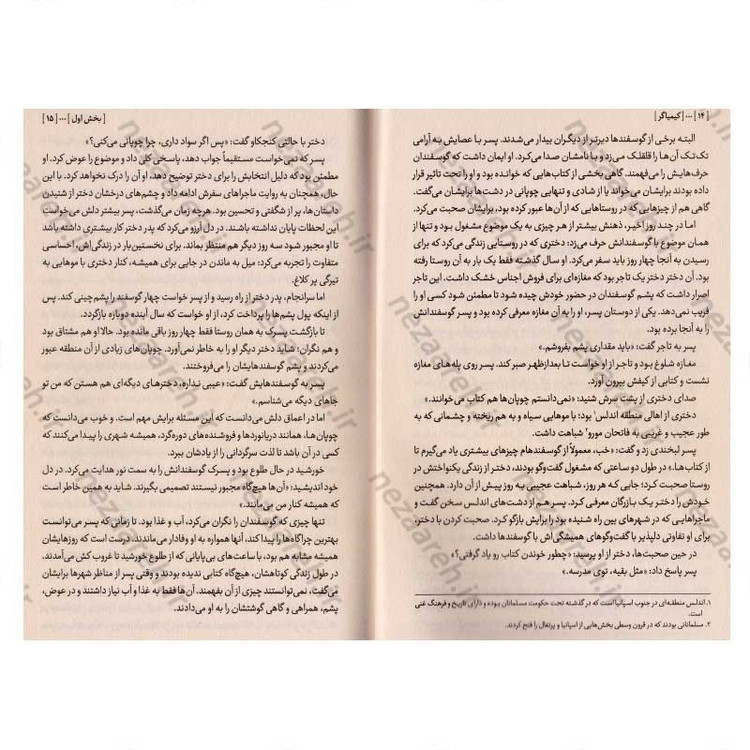 [۱۴] ... [کیمیاگر]
البته برخی از گوسفندها دیرتر از دیگران بیدار می‌شدند. پسر با عصایش به آرامی
تک‌تک آن‌ها را قلقلک می‌زد و با نامشان صدا می‌کرد. او ایمان داشت که گوسفندان
حرف‌هایش را می‌فهمند. گاهی بخشی از کتاب‌هایی که خوانده بود و او را تحت تاثیر قرار
داده بودند برایشان می‌خواند یا از شادی و تنهایی چوپانی در دشت‌ها برایشان می‌گفت.
گاهی هم از چیزهایی که در روستاهایی که از آن‌ها عبور کرده بود، برایشان صحبت می‌کرد.
اما در چند روز اخیر، ذهنش بیشتر از هر چیزی به یک موضوع مشغول بود و تنها از
همان موضوع با گوسفندانش حرف می‌زد: دختری که در روستایی زندگی می‌کرد که برای
رسیدن به آنجا چهار روز باید سفر می‌کرد. او سال گذشته فقط یک بار به آن روستا رفته
بود. آن دختر دختر یک تاجر بود که مغازه‌ای برای فروش اجناس خشک داشت. این تاجر
اصرار داشت که پشم گوسفندان در حضور خودش چیده شود تا مطمئن شود کسی او را
فریب نمی‌دهد. یکی از دوستان پسر، او را به آن مغازه معرفی کرده بود و پسر گوسفندانش
را به آنجا برده بود.
پسر به تاجر گفت: «باید مقداری پشم بفروشم.»
مغازه شلوغ بود و تاجر از او خواست تا بعدازظهر صبر کند. پسر روی پله‌های مغازه
نشست و کتابی از کیفش بیرون آورد.
صدای دختری از پشت سرش شنید: «نمی‌دانستم چوپان‌ها هم کتاب می‌خوانند.»
دختری از اهالی منطقه اندلس۱ بود؛ با موهایی سیاه و به هم ریخته و چشمانی که به
طور عجیب و غریبی به فاتحان مورو۲ شباهت داشت.
پسر لبخندی زد و گفت: «خب، معمولاً از گوسفندهام چیزهای بیشتری یاد می‌گیرم تا
از کتاب‌ها.» در طول دو ساعتی که مشغول گفت‌وگو بودند، دختر از زندگی یکنواختش در
روستا صحبت کرد؛ جایی که هر روز، شباهت عجیبی به روز پیش از آن دارد. همچنین
خودش را دختر یک بازرگان معرفی کرد. پسر هم از دشت‌های اندلس سخن گفت و
ماجراهایی که در شهرهای بین راه شنیده بود را برایش بازگو کرد. صحبت کردن با دختر،
برای او تفاوتی دلپذیر با گفت‌وگوهای همیشگی‌اش با گوسفندها داشت.
در حین صحبت‌ها، دختر از او پرسید: «چطور خوندن کتاب رو یاد گرفتی؟»
پسر پاسخ داد: «مثل بقیه، توی مدرسه.»
۱. اندلس منطقه‌ای در جنوب اسپانیا است که در گذشته تحت حکومت مسلمانان بوده و دارای تاریخ و فرهنگ غنی
است.
۲. مسلمانانی بودند که در قرون وسطی بخش‌هایی از اسپانیا و پرتغال را فتح کردند.
[بخش اول] ... [۱۵]
دختر با حالتی کنجکاو گفت: «پس اگر سواد داری، چرا چوپانی می‌کنی؟»
پسر که نمی‌خواست مستقیماً جواب دهد، پاسخی کلی داد و موضوع را عوض کرد. او
مطمئن بود که دلیل انتخابش را برای دختر توضیح دهد، او آن را درک نخواهد کرد. با این
حال، همچنان به روایت ماجراهای سفرش ادامه داد و چشم‌های درخشان دختر از شنیدن
داستان‌ها، پر از شگفتی و تحسین بود. هرچه زمان می‌گذشت، پسر بیشتر دلش می‌خواست
این لحظات پایان نداشته باشند. در دل آرزو می‌کرد که پدر دختر کار بیشتری داشته باشد
تا او مجبور شود سه روز دیگر هم منتظر بماند. برای نخستین‌بار در زندگی‌اش، احساسی
متفاوت را تجربه می‌کرد: میل به ماندن در جایی برای همیشه، کنار دختری با موهایی به
تیرگی پر کلاغ.
اما سرانجام، پدر دختر از راه رسید و از پسر خواست چهار گوسفند را پشم‌چینی کند. پس
از اینکه پول پشم‌ها را پرداخت کرد، از او خواست که سال آینده دوباره بازگردد.
تا بازگشت پسرک به همان روستا فقط چهار روز باقی مانده بود. حالا او هم مشتاق بود
و هم نگران؛ شاید دختر دیگر او را به خاطر نمی‌آورد. چوپان‌های زیادی از آن منطقه عبور
می‌کردند و پشم گوسفندهایشان را می‌فروختند.
پسر به گوسفندهایش گفت: «عیبی نداره، دخترهای دیگه‌ای هم هستن که من تو
جاهای دیگه می‌شناسم.»
اما در اعماق دلش می‌دانست که این مسئله برایش مهم است. و خوب می‌دانست که
چوپان‌ها، همانند دریانوردها و فروشنده‌های دوره‌گرد، همیشه شهری را پیدا می‌کنند که
کسی در آن باشد تا لذت سرگردانی را از یادشان ببرد.
خورشید در حال طلوع بود و پسرک گوسفندانش را به سمت نور هدایت می‌کرد. در دل
خود اندیشید: «آن‌ها هیچ‌گاه مجبور نیستند تصمیمی بگیرند. شاید به همین خاطر است
که همیشه کنار من می‌مانند.»
تنها چیزی که گوسفندان را نگران می‌کرد، آب و غذا بود. تا زمانی که پسر می‌توانست
بهترین چراگاه‌ها را پیدا کند، آنها همواره به او وفادار می‌ماندند. درست است که روزهایشان
همیشه مشابه هم بود، با ساعت‌های بی‌پایانی که از طلوع خورشید تا غروب کش می‌آمدند.
در طول زندگی کوتاهشان، هیچ‌گاه کتابی ندیده بودند و وقتی پسر از مناظر شهرها برایشان
می‌گفت، نمی‌توانستند چیزی از آن بفهمند. آن‌ها فقط به غذا و آب نیاز داشتند و در عوض،
پشم، همراهی و گاهی گوشتشان را به او می‌دادند.
nezaareh.ir